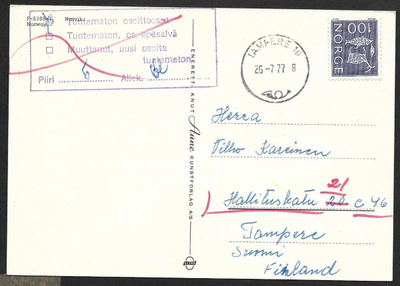 P-5189-1 Narvik.
Norway.
Tuntematon osoitteessa
Tuntematon, os. epäselvä
Muuttanut, uusi osoite
tuntematon
Piiri 5 Allek.
ENERETT: KNUT Aune KUNSTFORLAG A/S
TAMPERE 10
26-7.77 8
100
NORGE
Herra
Vilho Kareinen
21
Hallituskatu 20 C 46
Tampere
Suomi
Finland